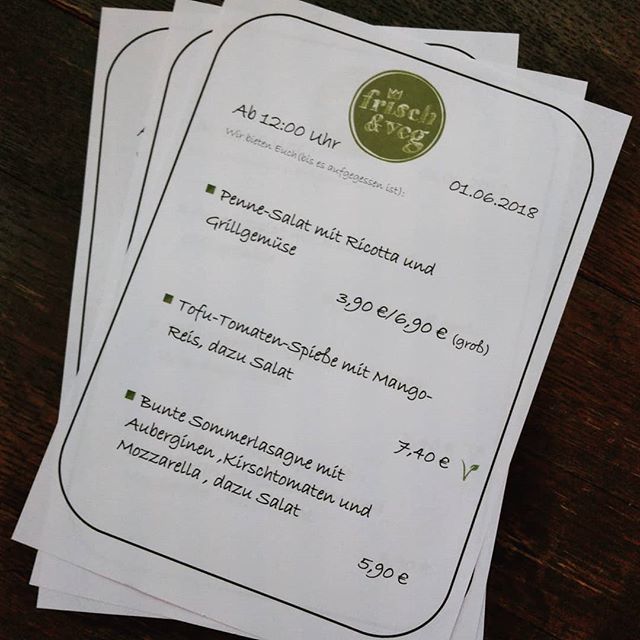 frisch
& veg
Ab 12:00 Uhr
Wir bieten Euch (bis es aufgegessen ist):
01.06.2018
Penne-Salat mit Ricotta und
Grillgemüse
3,90 €/6,90 € (groß)
Tofu-Tomaten-Spieße mit Mango-
Reis, dazu Salat
7,40 €
Bunte Sommerlasagne mit
Auberginen, Kirschtomaten und
Mozzarella, dazu Salat
5,90 €